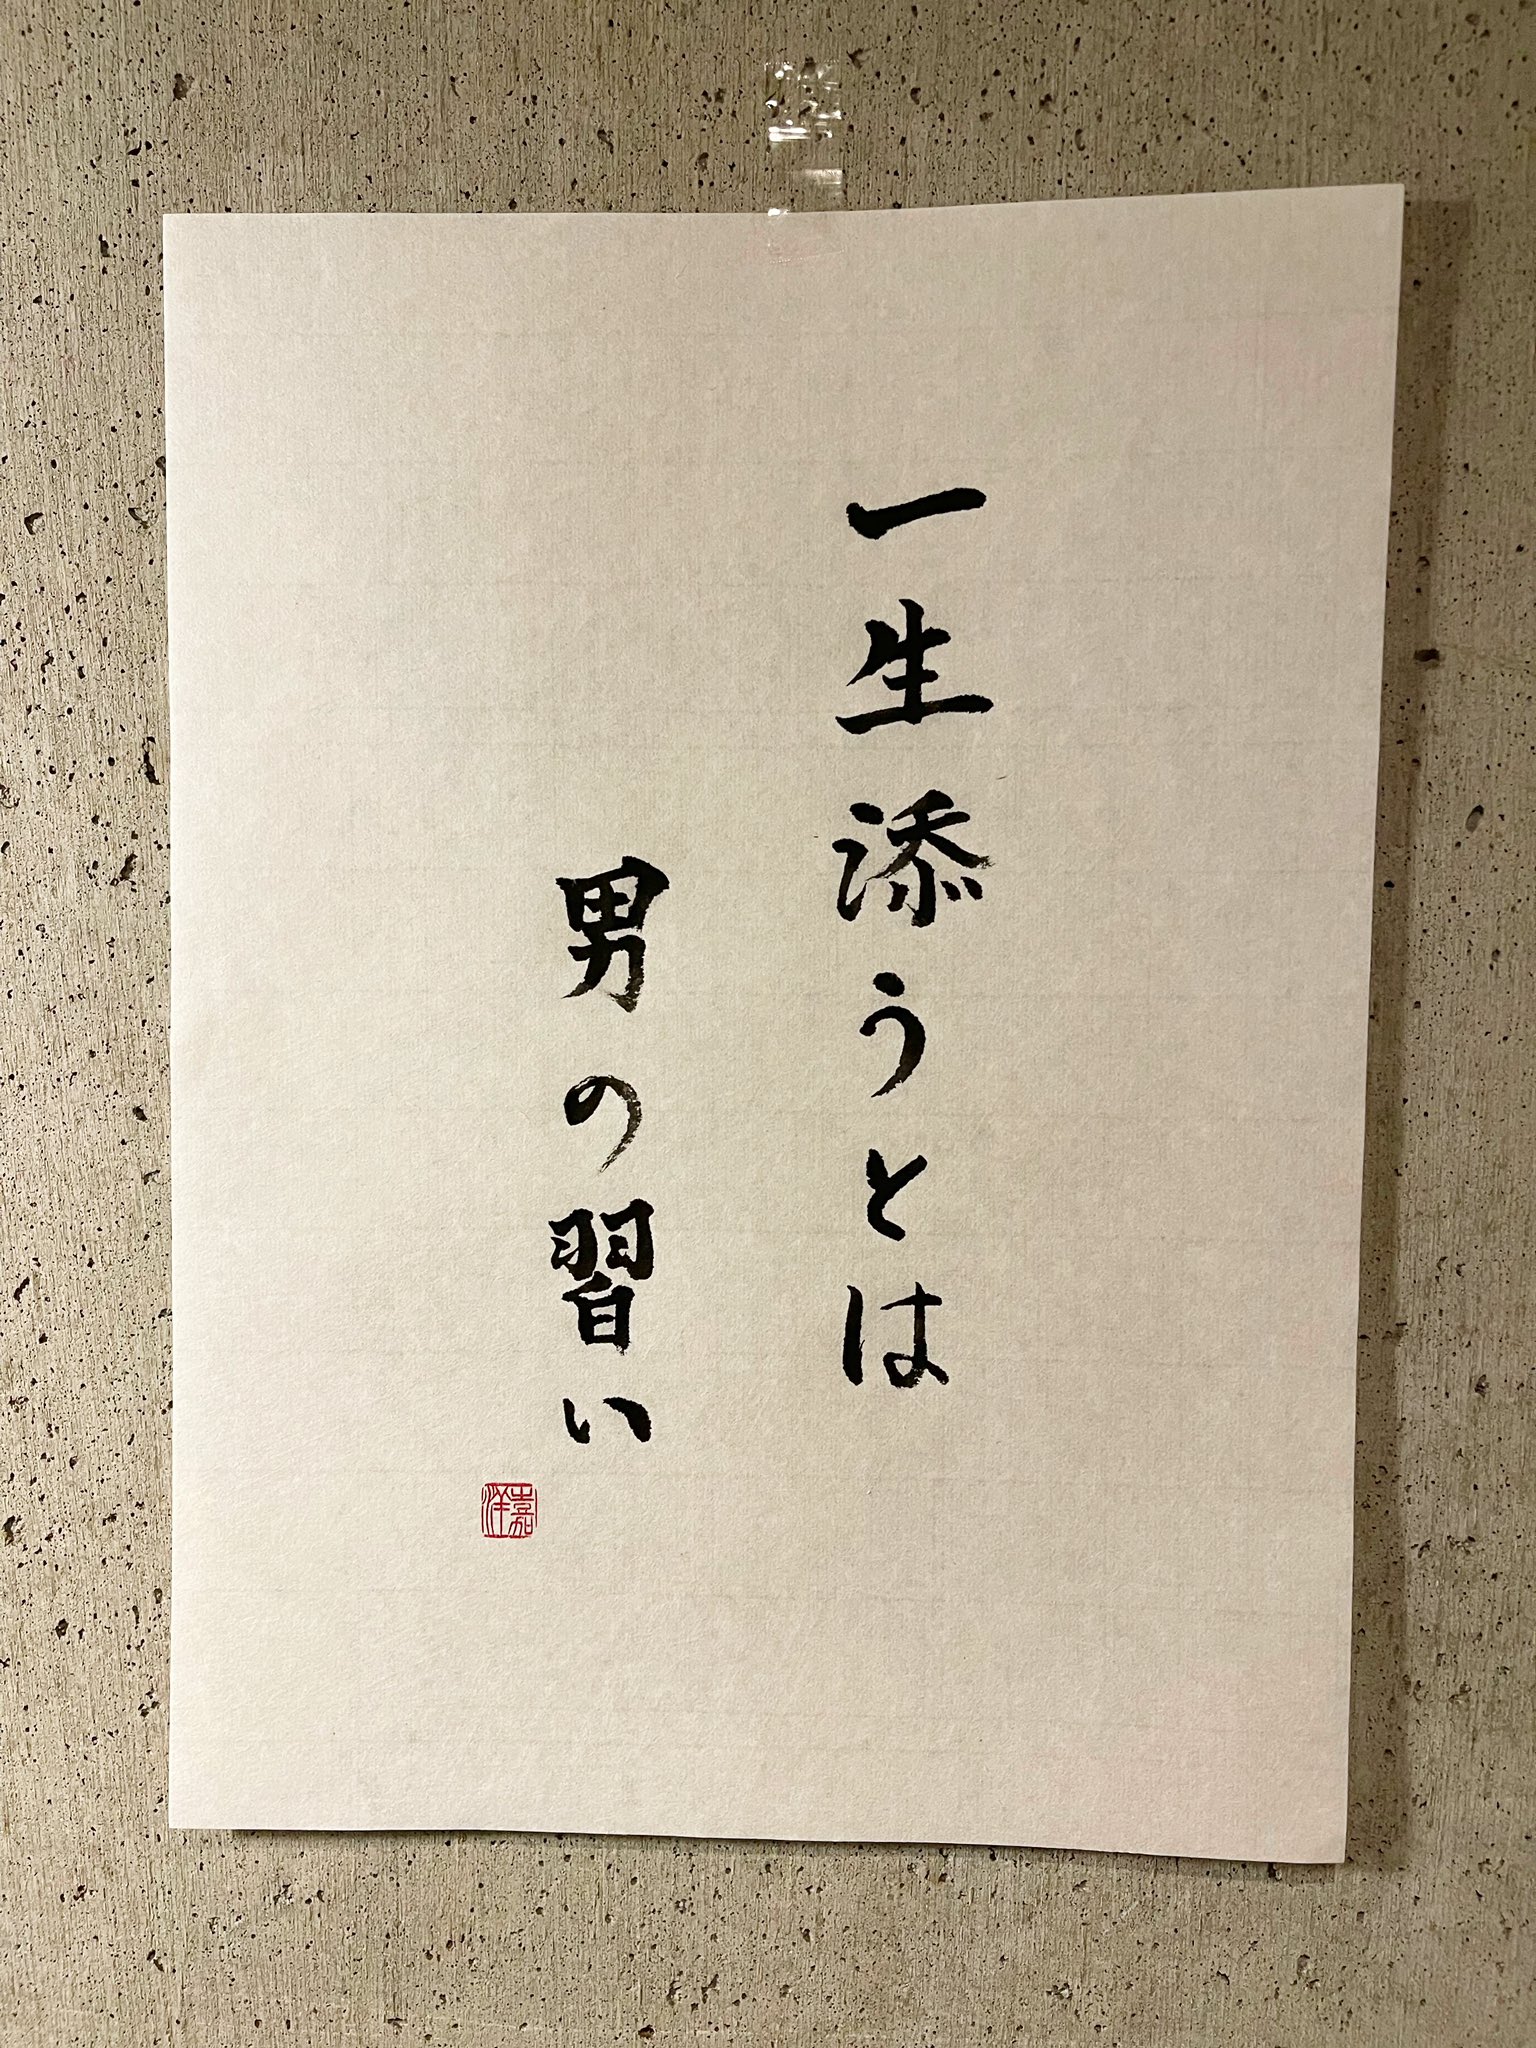 一生添うとは
男の習い
嘉洋